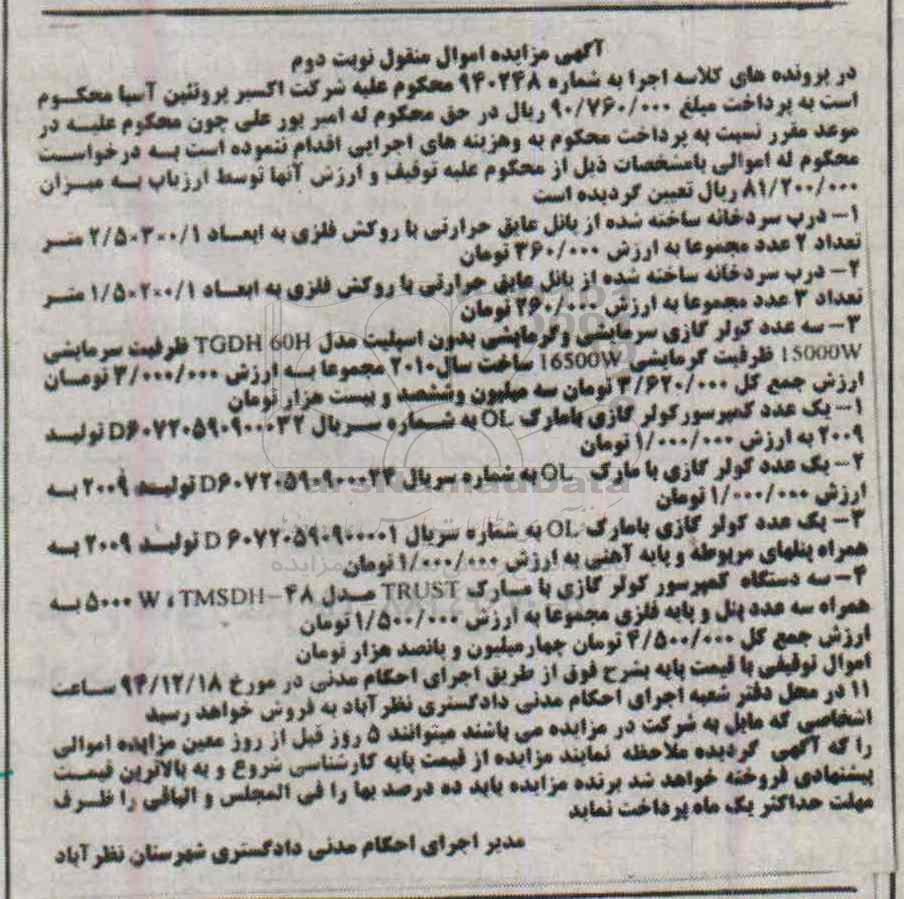 آگهی مزایده اموال منقول نوبت دوم
در پرونده های کلاسه اجرا به شماره ۹۴۰۲۴۸ محکوم علیه شرکت اکسیر پروتئین آسیا محکوم
است به پرداخت مبلغ ۹۰/۷۶۰/۰۰۰ ریال در حق محکوم له امیر پور علی چون محکوم علیه در
موعد مقرر نسبت به پرداخت محکوم به وهزینه های اجرایی اقدام ننموده است به درخواست
محکوم له اموالی بامشخصات ذیل از محکوم علیه توقیف و ارزش آنها توسط ارزیاب به میزان
۸۱/۲۰۰/۰۰۰ ریال تعیین گردیده است
۱- درب سردخانه ساخته شده از پانل عایق حرارتی با روکش فلزی به ابعاد ۲/۵۰*۳۰۰/۱ متر
تعداد ۲ عدد مجموعا به ارزش ۳۶۰/۰۰۰ تومان
۲- درب سردخانه ساخته شده از پانل عایق حرارتی با روکش فلزی به ابعاد ۱/۵۰*۲۰۰/۱ متر
تعداد ۳ عدد مجموعا به ارزش ۲۶۰/۰۰۰ تومان
۳- سه عدد کولر گازی سرمایشی وگرمایشی بدون اسپلیت مدل TGDH 60H ظرفیت سرمایشی
15000W ظرفیت گرمایشی 16500W ساخت سال۲۰۱۰ مجموعا به ارزش ۳/۰۰۰/۰۰۰ تومان
ارزش جمع کل ۳/۶۲۰/۰۰۰ تومان سه میلیون وششصد و بیست هزار تومان
۱- یک عدد کمپرسورکولر گازی بامارک OL به شماره سریال D۶۰۷۲۰۵۹۰۹۰۰۰۳۲ تولید
۲۰۰۹ به ارزش ۱/۰۰۰/۰۰۰ تومان
۲- یک عدد کولر گازی با مارک OL به شماره سریال D۶۰۷۲۰۵۹۰۹۰۰۰۲۴ تولید ۲۰۰۹ به
ارزش ۱/۰۰۰/۰۰۰ تومان
۳- یک عدد کولر گازی بامارک OL به شماره سریال D ۶۰۷۲۰۵۹۰۹۰۰۰۰۱ تولید ۲۰۰۹ به
همراه پنلهای مربوطه و پایه آهنی به ارزش ۱/۰۰۰/۰۰۰ تومان
۴- سه دستگاه کمپرسور کولر گازی با مارک TRUST مدل TMSDH-۴۸ ، ۵۰۰۰ W به
همراه سه عدد پنل و پایه فلزی مجموعا به ارزش ۱/۵۰۰/۰۰۰ تومان
ارزش جمع کل ۴/۵۰۰/۰۰۰ تومان چهارمیلیون و پانصد هزار تومان
اموال توقیفی با قیمت پایه بشرح فوق از طریق اجرای احکام مدنی در مورخ ۹۴/۱۲/۱۸ ساعت
۱۱ در محل دفتر شعبه اجرای احکام مدنی دادگستری نظرآباد به فروش خواهد رسید
اشخاصی که مایل به شرکت در مزایده می باشند میتوانند ۵ روز قبل از روز معین مزایده اموالی
را که آگهی گردیده ملاحظه نمایند مزایده از قیمت پایه کارشناسی شروع و به بالاترین قیمت
پیشنهادی فروخته خواهد شد برنده مزایده باید ده درصد بها را فی المجلس و الباقی را ظرف
مهلت حداکثر یک ماه پرداخت نماید
مدیر اجرای احکام مدنی دادگستری شهرستان نظرآباد
ParsNamadData